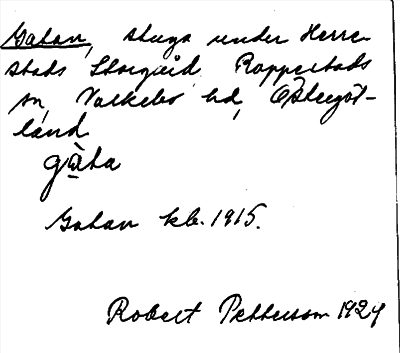 Gatan, stuga under Herre-
stads Storgård, Rappestads
sn, Valkebo hd, Östergöt-
land
gàta
Gatan kb. 1915.
Robert Pettersson 1929